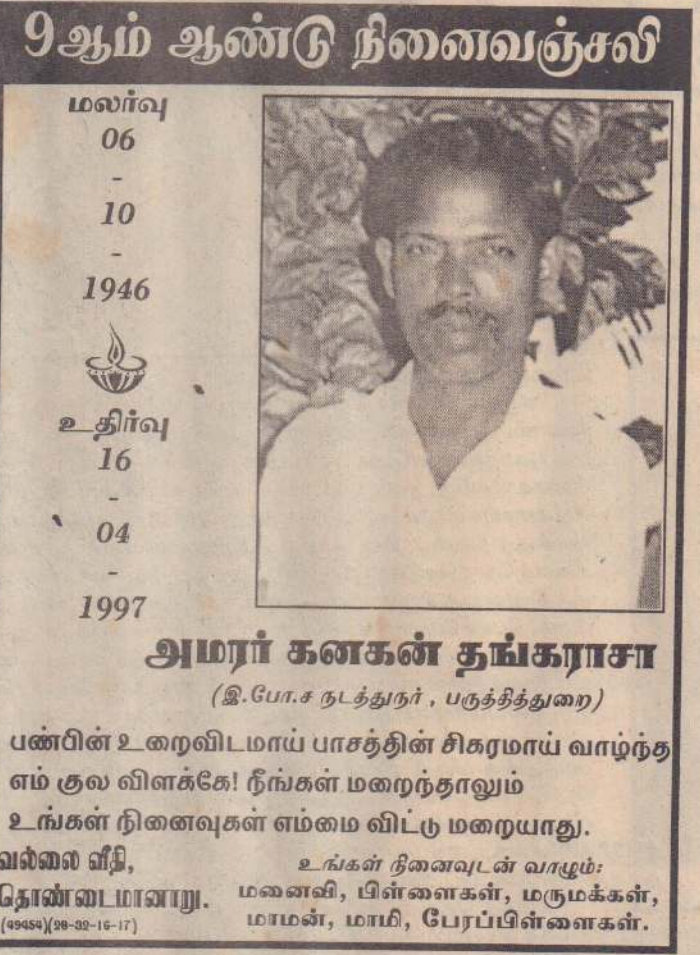 9ஆம் ஆண்டு நினைவஞ்சலி
மலர்வு
06
-
10
-
1946
உதிர்வு
16
-
04
-
1997
அமரர் கனகன் தங்கராசா
(இ.போ.ச நடத்துநர் , பருத்தித்துறை)
பண்பின் உறைவிடமாய் பாசத்தின் சிகரமாய் வாழ்ந்த
எம் குல விளக்கே! நீங்கள் மறைந்தாலும்
உங்கள் நினைவுகள் எம்மை விட்டு மறையாது.
வல்லை வீதி,
தொண்டைமானாறு.
(49454)(28-32-16-17)
உங்கள் நினைவுடன் வாழும்:
மனைவி, பிள்ளைகள், மருமக்கள்,
மாமன், மாமி, பேரப்பிள்ளைகள்.